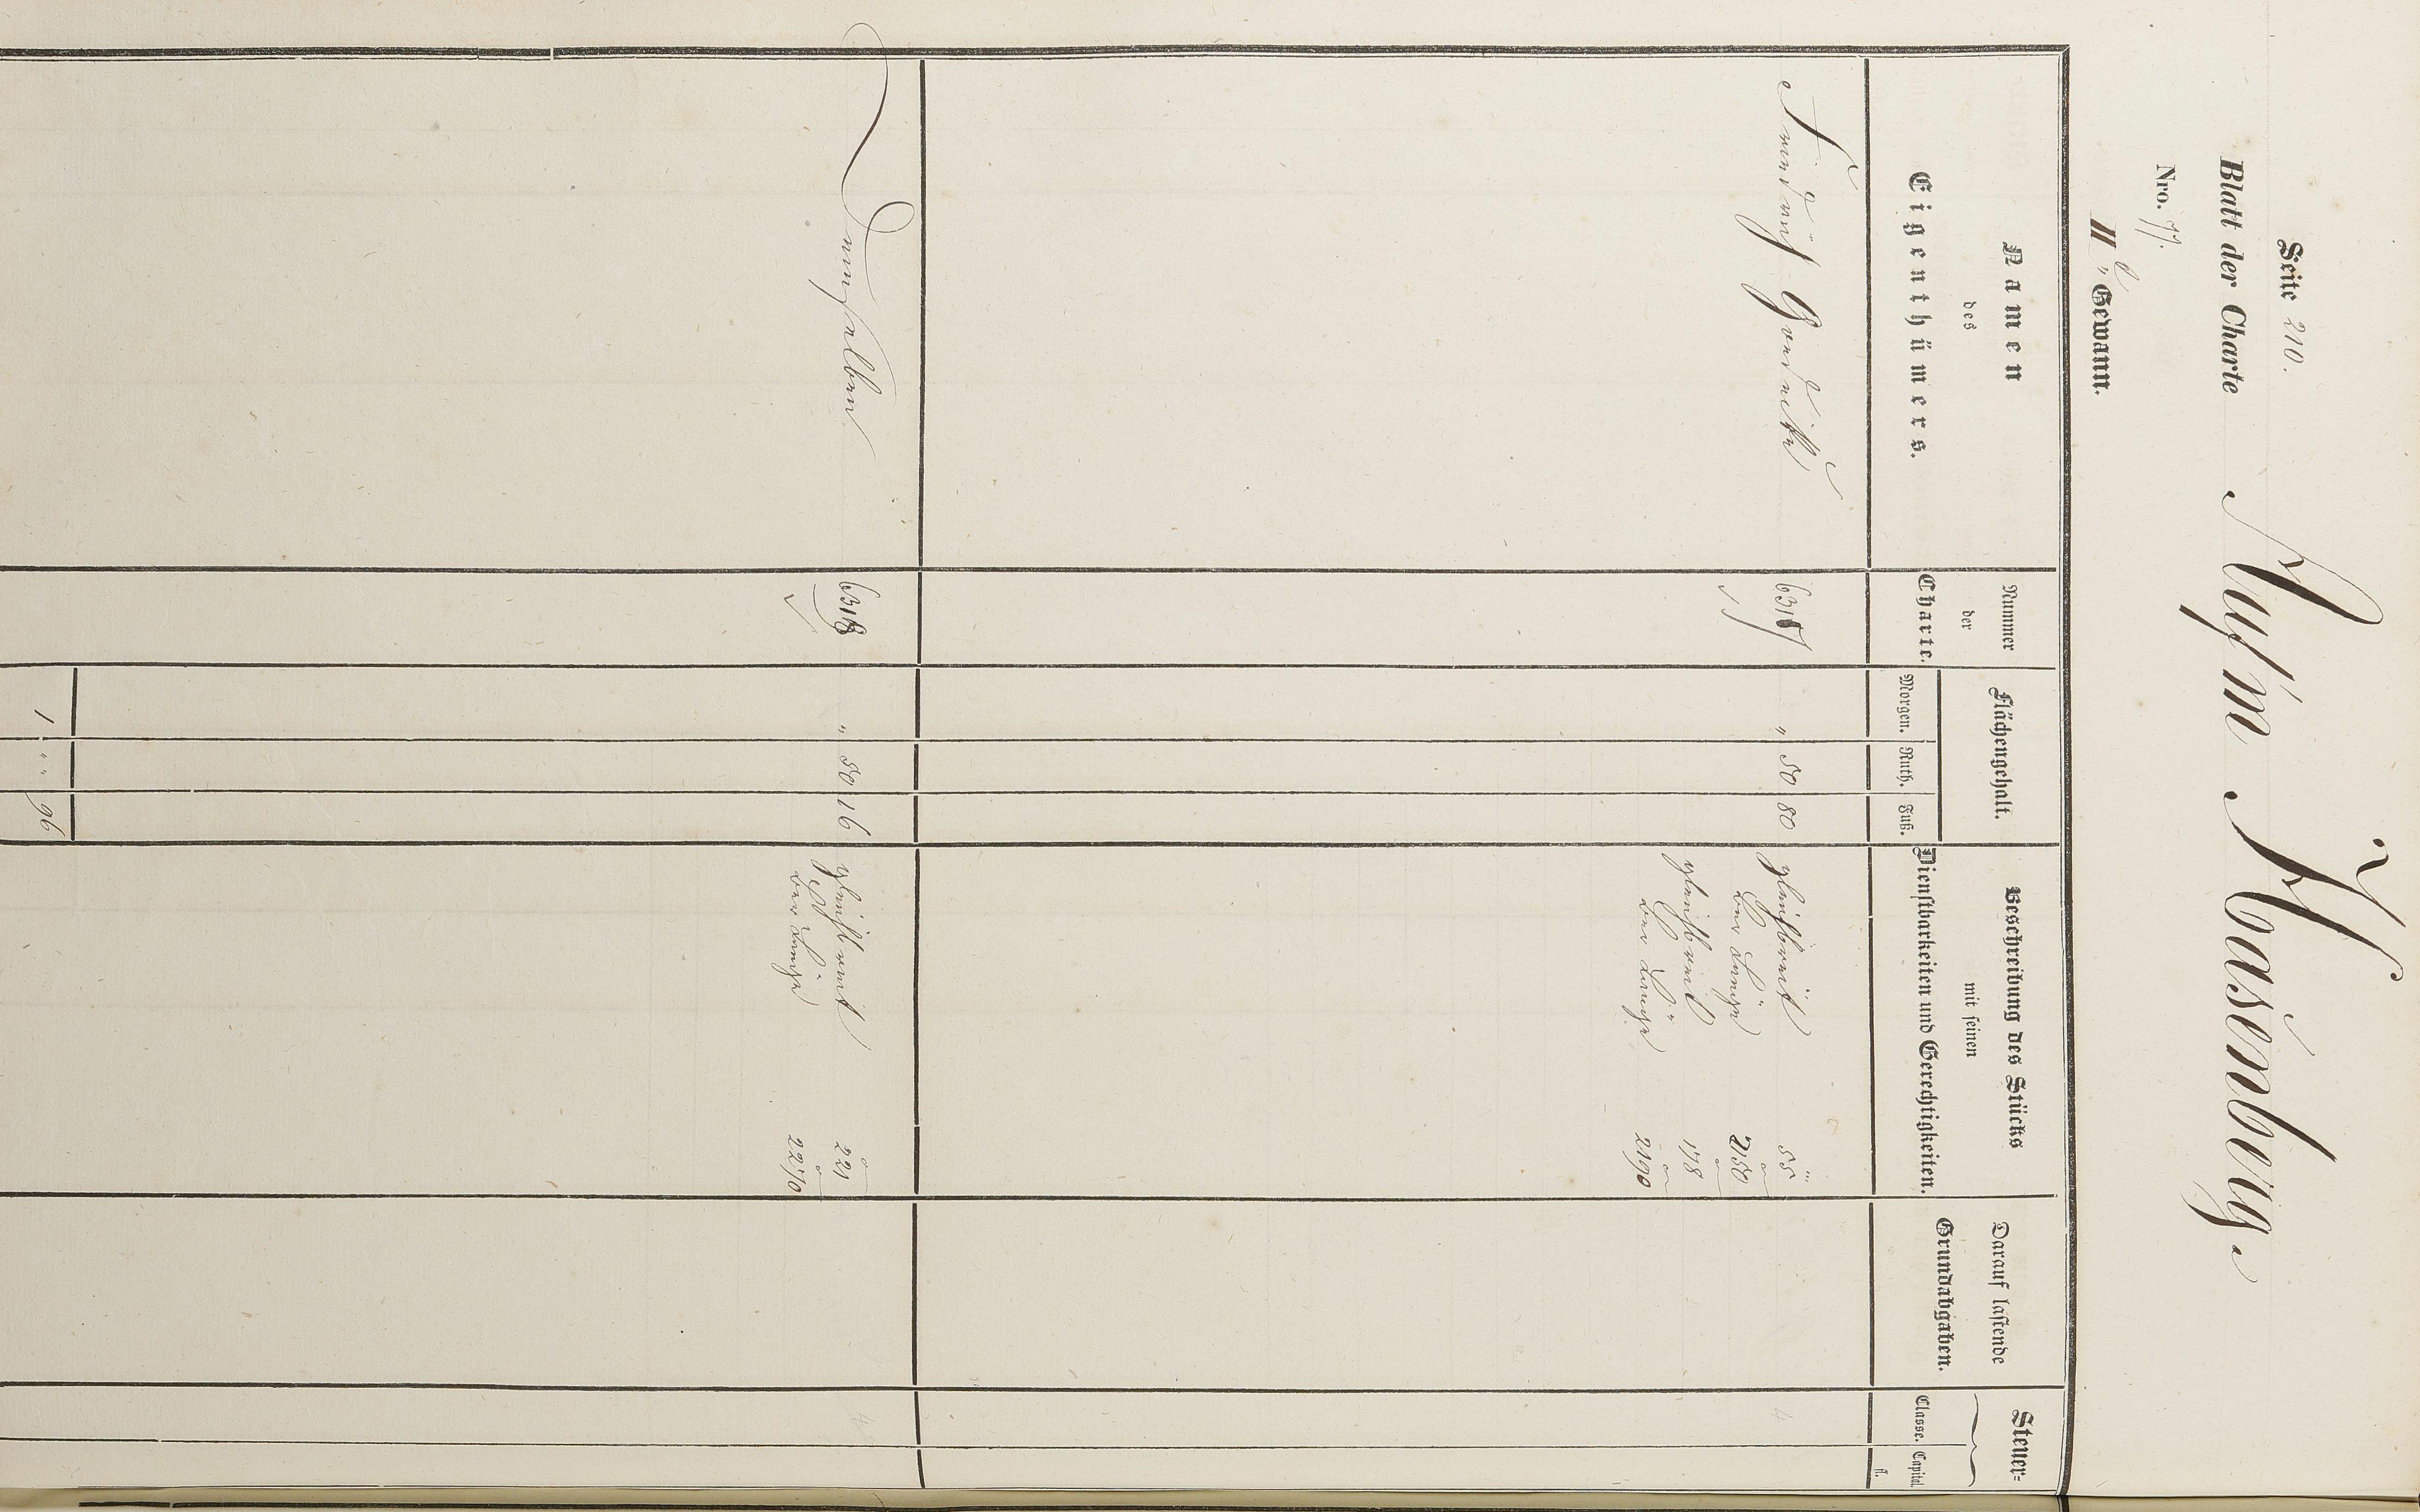 Seite 210.
Blatt der Charte
Nro. 77.
II.te Gewann.
Auf'm Hasenberg.
Namen
des
Eigenthümers.
Nummer
der
Charte.
Flächengehalt.
Morgen. Ruth. Fuß.
Beschreibung des Stücks
mit seinen
Dienstbarkeiten und Gerechtigkeiten.
Darauf lastende
Grundabgaben.
Steuer-
Classe. Capital.
fl.
" 50 80 gleichbreit 55 4
der Länge 2150
gleichbreit 178
der Länge 2190
Demselben 6318 " 50 16 221 4
der Länge 2270
1 " " 96